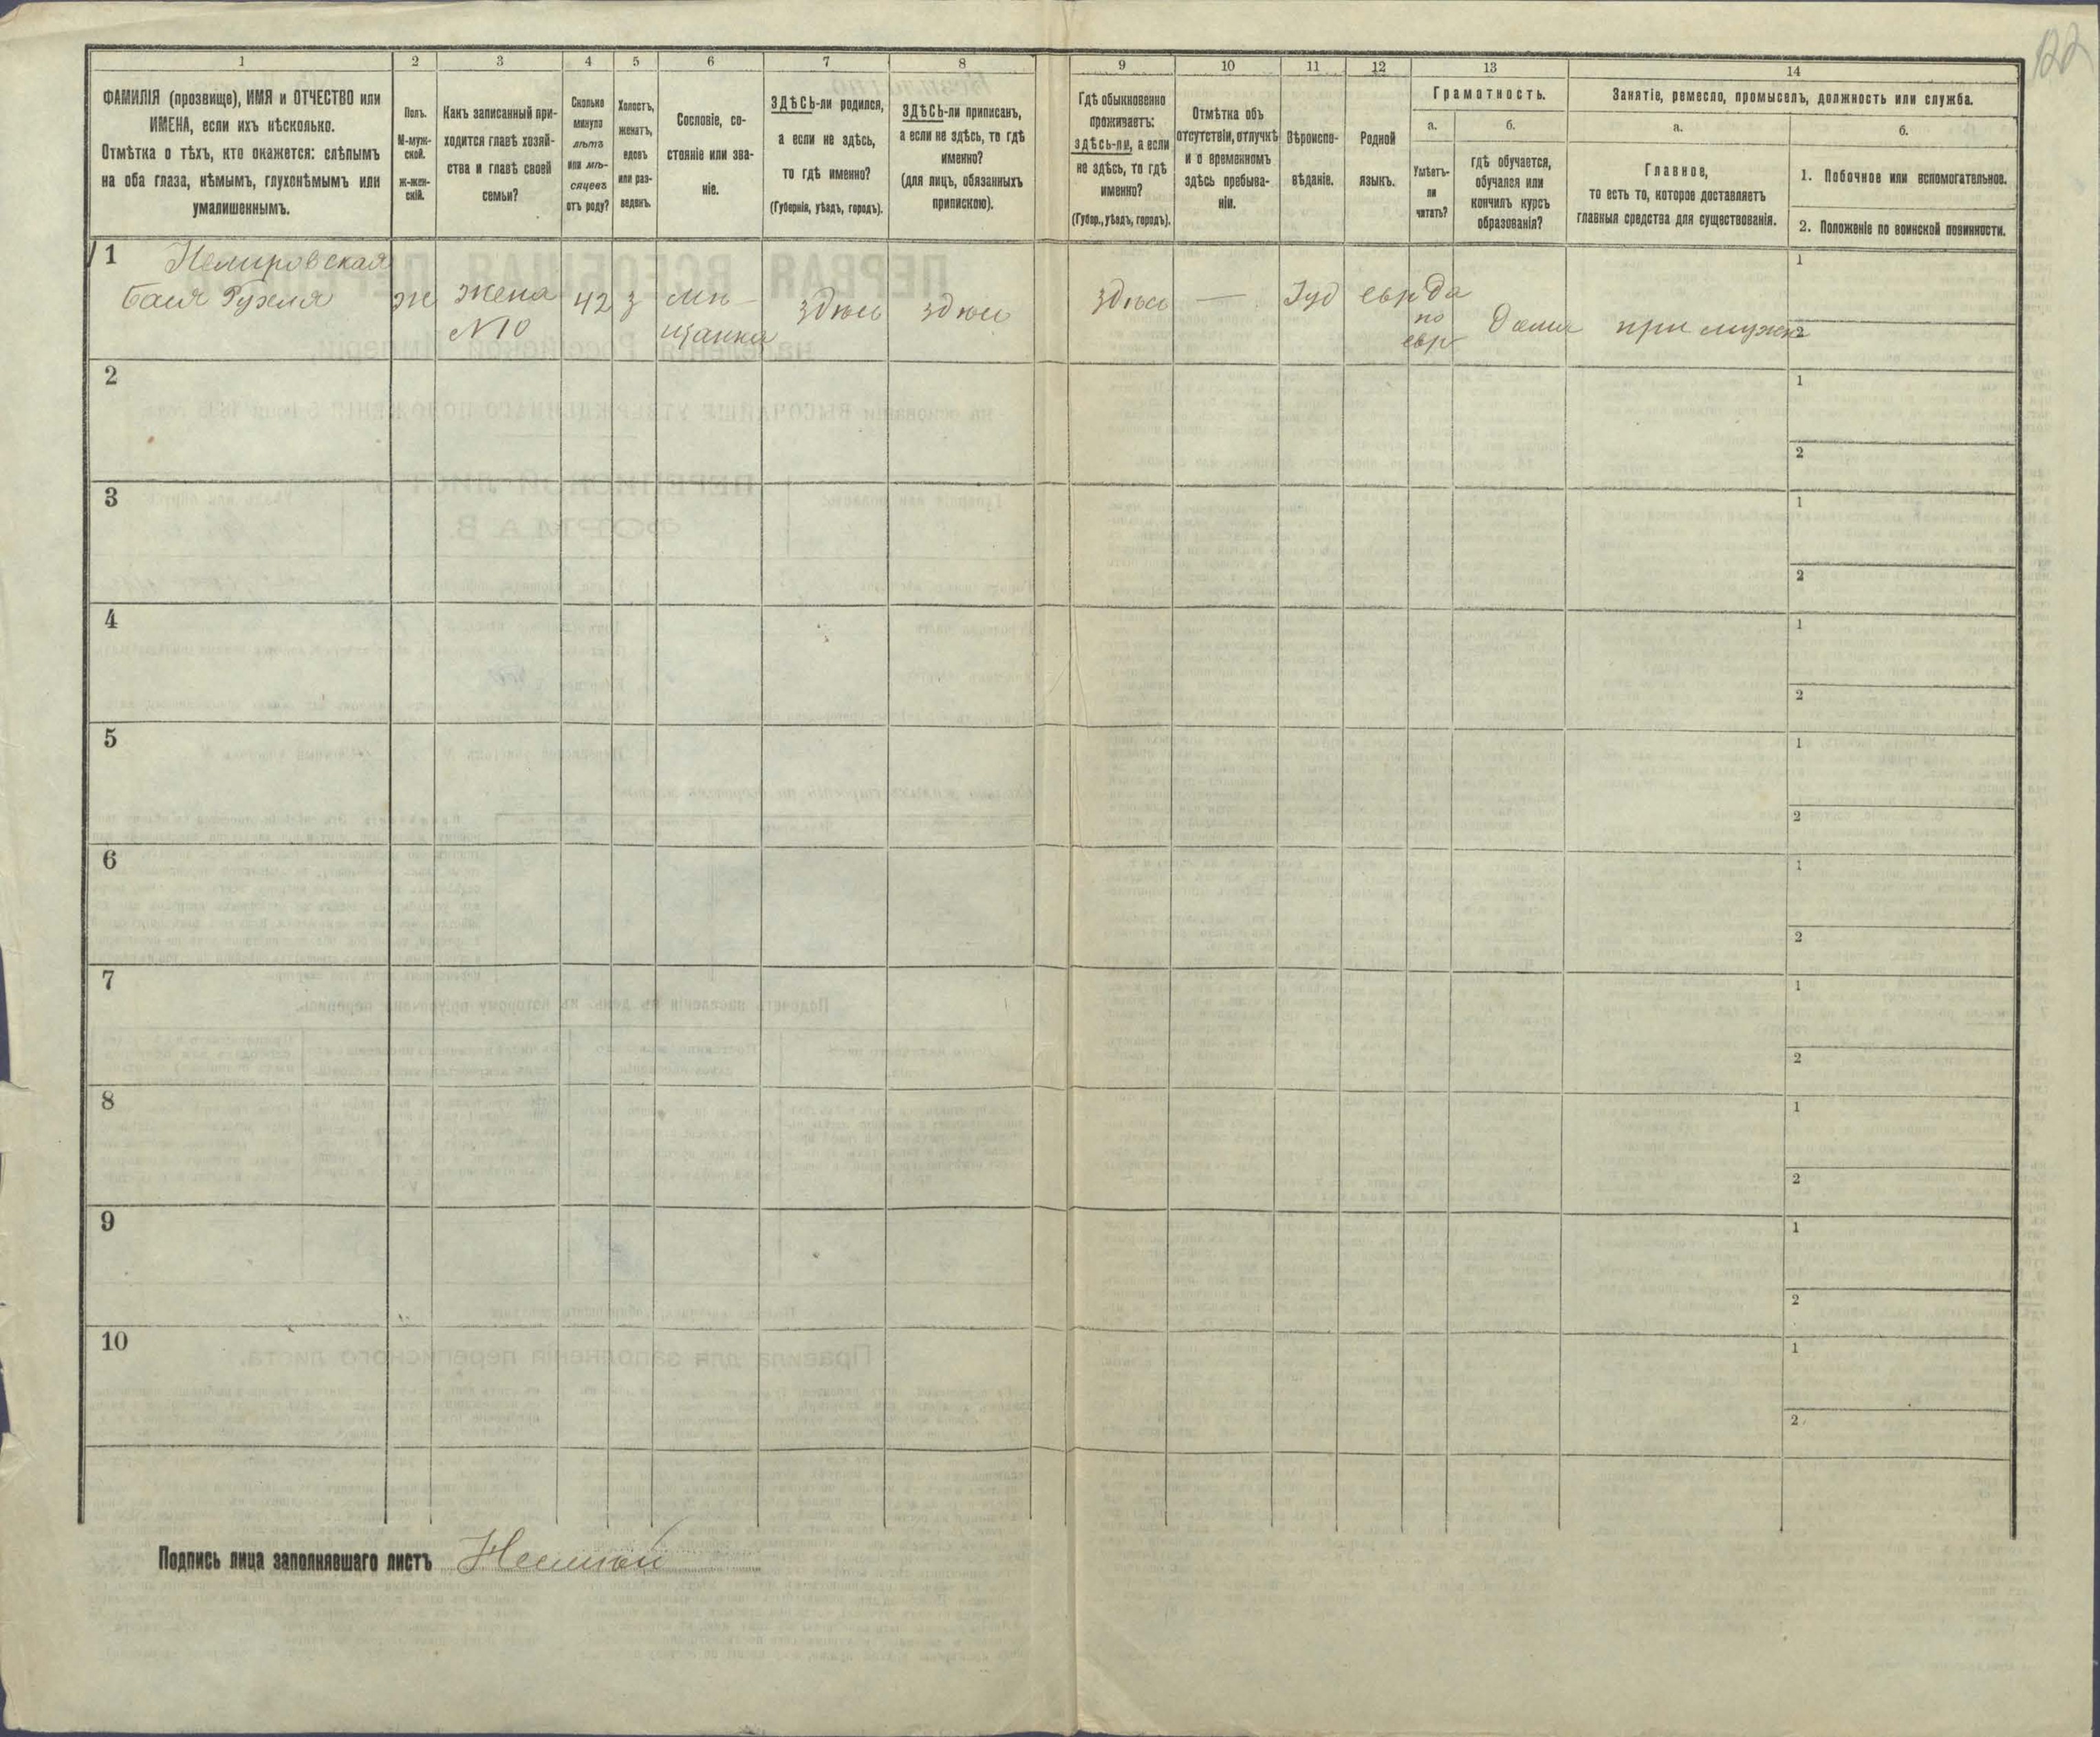 122
1 2 3 4 5 6 7 8 9 10 11 12 13 14
ФАМИЛІЯ (прозвище), ИМЯ и ОТЧЕСТВО или
ИМЕНА, если ихъ нѣсколько.
Отмѣтка о тѣхъ, кто окажется: слѣпымъ
на оба глаза, нѣмымъ, глухонѣмымъ или
умалишеннымъ.
Полъ.
М-муж-
ской.
ж-жен-
скій.
Какъ записанный при-
ходится главѣ хозяй-
ства и главѣ своей
семьи?
Сколько
минуло
лѣтъ
или мѣ-
сяцевъ
отъ роду?
Холостъ,
женатъ,
вдовъ
или раз-
веденъ.
Сословіе, со-
стояніе или зва-
ніе.
ЗДѢСЬ-ли родился,
а если не здѣсь,
то гдѣ именно?
(Губернія, уѣздъ, городъ).
ЗДѢСЬ-ли приписанъ,
а если не здѣсь, то гдѣ
именно?
(для лицъ, обязанныхъ
припискою).
Гдѣ обыкновенно
проживаетъ:
здѣсь-ли, а если
не здѣсь, то гдѣ
именно?
(Губер., уѣздъ, городъ).
Отмѣтка объ
отсутствіи, отлучкѣ
и о временномъ
здѣсь пребыва-
ніи.
Вѣроиспо-
вѣданіе.
Родной
языкъ.
Грамотность.
а.
Умѣетъ-
ли
читать?
б.
гдѣ обучается,
обучался или
кончилъ курсъ
образованія?
Занятіе, ремесло, промыселъ, должность или служба.
а.
Главное,
то есть то, которое доставляетъ
главныя средства для существованія.
б.
1. Побочное или вспомогательное.
2. Положеніе по воинской повинности.
1 Немировская
Бася Рухля
ж
жена
N 10
42
з
мѣ-
щанка
здѣсь
здѣсь
здѣсь
—
Іуд
евр
да
по
евр
дома
при мужѣ
1
2
2
1
2
3
1
2
4
1
2
5
1
2
6
1
2
7
1
2
8
1
2
9
1
2
10
1
2
Подпись лица заполнявшаго листъ